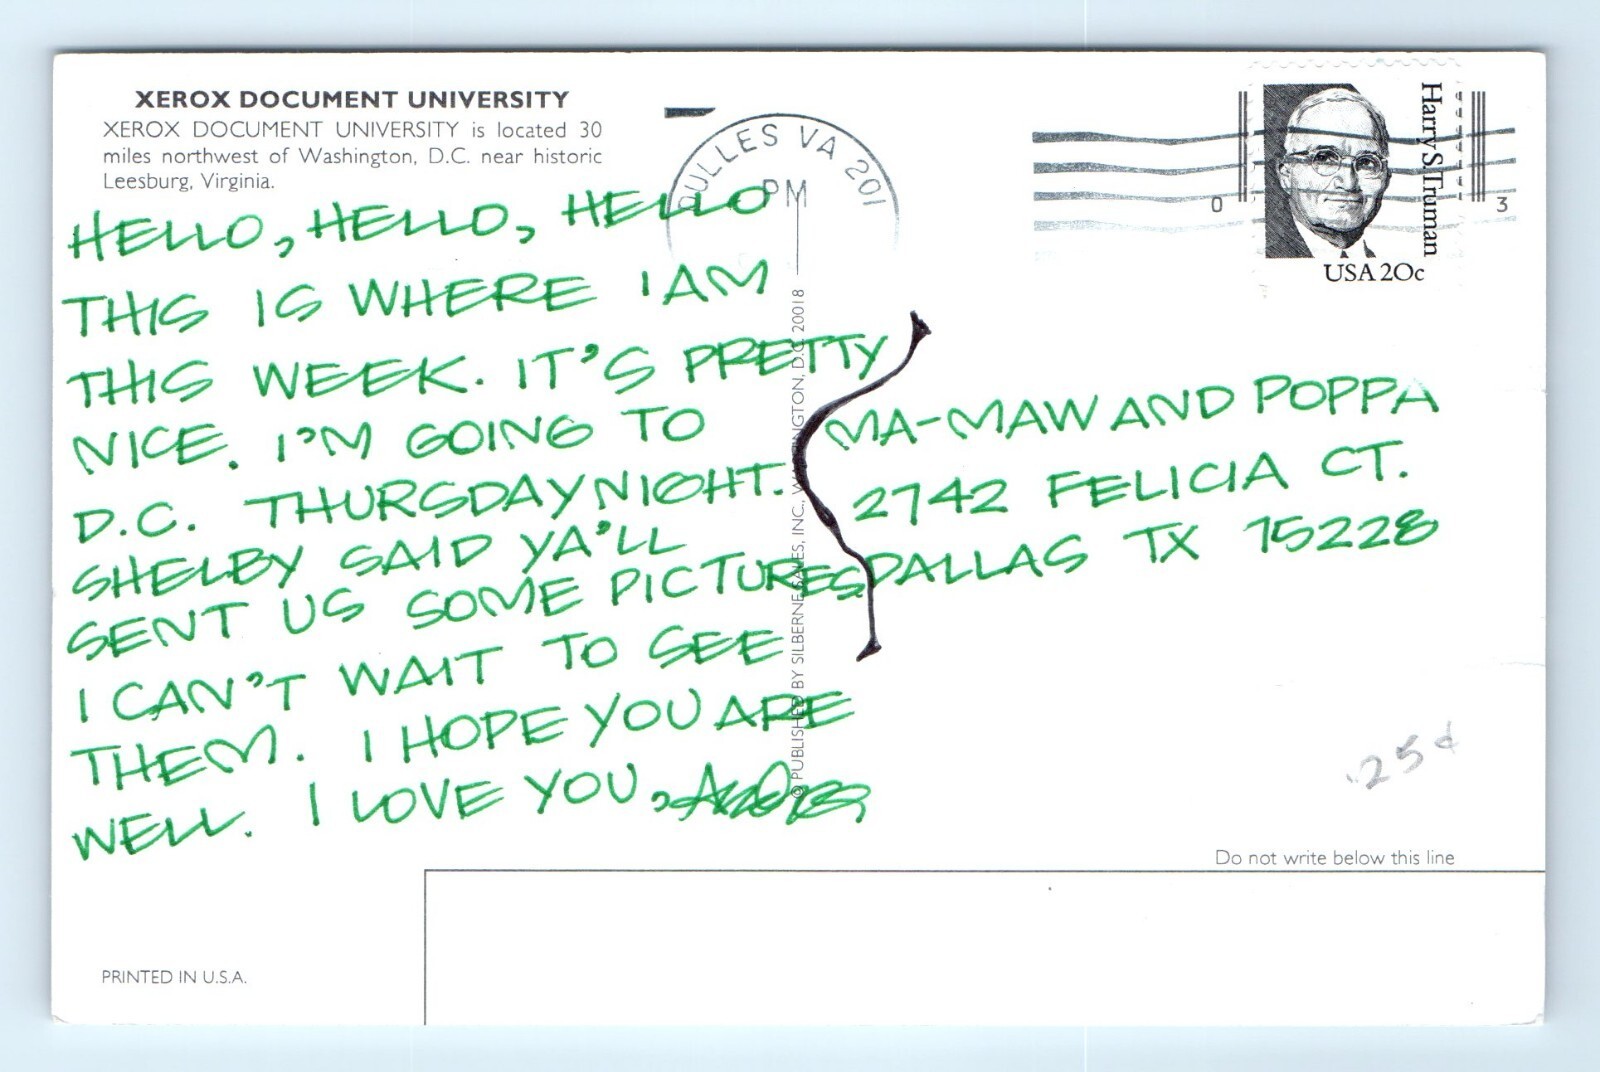 XEROX DOCUMENT UNIVERSITY
XEROX DOCUMENT UNIVERSITY is located 30
miles northwest of Washington, D.C. near historic
Leesburg, Virginia.
HELLO, HELLO, HELLO
THIS IS WHERE I AM
THIS WEEK. IT'S PRETTY
NICE. I'M GOING TO
D.C. THURSDAY NIGHT.
SHELBY SAID YA'LL
SENT US SOME PICTURES
I CAN'T WAIT TO SEE
THEM. I HOPE YOU ARE
WELL. I LOVE YOU,
DULLES VA 201
PM
© PUBLISHED BY SILBERNE SALES, INC., WASHINGTON, D.C. 20018
0
3
Harry S. Truman
USA 20c
MA-MAW AND POPPA
2742 FELICIA CT.
DALLAS TX 75228
.25¢
Do not write below this line
PRINTED IN U.S.A.